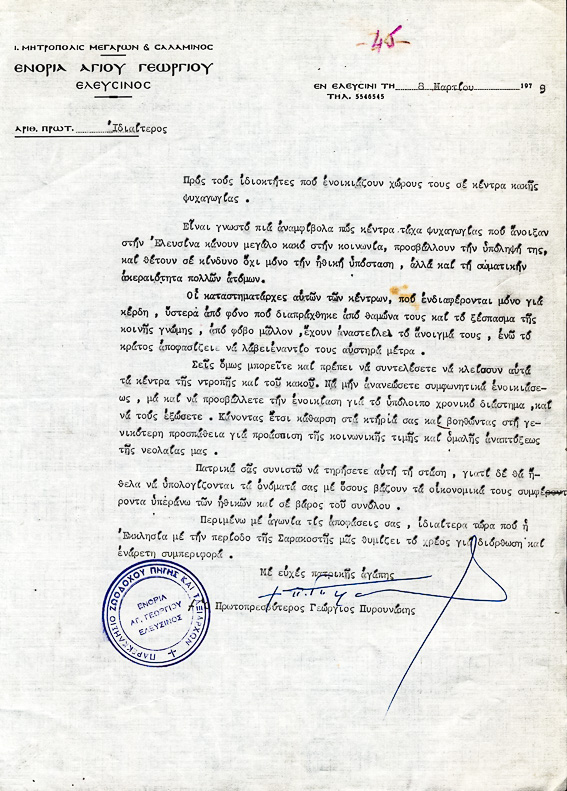 -45-
Ι. ΜΗΤΡΟΠΟΛΙΣ ΜΕΓΑΡΩΝ & ΣΑΛΑΜΙΝΟΣ
ΕΝΟΡΙΑ ΑΓΙΟΥ ΓΕΩΡΓΙΟΥ
ΕΛΕΥΣΙΝΟΣ
ΕΝ ΕΛΕΥΣΙΝΙ ΤΗ 8 Μαρτίου 1979
ΤΗΛ. 5546545
ΑΡΙΘ. ΠΡΩΤ. Ἰδιαίτερος
Πρός τούς ἰδιοκτήτες πού ἐνοικιάζουν χώρους τους σέ κέντρα κακῆς
ψυχαγωγίας .
Εἶναι γνωστό πιά ἀναμφίβολα πώς κέντρα τάχα ψυχαγωγίας πού ἄνοιξαν
στήν Ἐλευσῖνα κάνουν μεγάλο κακό στήν κοινωνία, προσβάλλουν τήν ὑπόληψή της,
καί θέτουν σέ κίνδυνο ὄχι μόνο τήν ἠθική ὑπόσταση , ἀλλά καί τή σωματικήν
ἀκεραιότητα πολλῶν ἀτόμων.
Οἱ καταστηματάρχες αὐτῶν τῶν κέντρων, πού ἐνδιαφέρονται μόνο γιά
κέρδη , ὕστερά ἀπό φόνο πού διαπράχθηκε ἀπό θαμῶνα τους καί τό ξέσπασμα τῆς
κοινῆς γνώμης , ἀπό φόβο μᾶλλον ,ἔχουν ἀναστείλει τό ἄνοιγμά τους , ἐνῶ τό
κράτος ἀποφασίζειε νά λάβειἐναντίο τους αὐστηρά μέτρα .
Σεῖς ὅμως μπορεῖτε καί πρέπει νά συντελέσετε νά κλείσουν αὐτά
τά κέντρα τῆς ντροπῆς καί τοῦ κακοῦ. Νά μήν ἀνανεώσετε συμφωνητικά ἐνοικιάσε-
ως , μά καί νά προσβάλλετε τήν ἐνοικίαση γιά τό ὑπόλοιπο χρονικό διάστημα ,καί
νά τούς ἐξώσετε . Κάνοντας ἔτσι κάθαρση στά κτήριά σας καί βοηθῶντας στή γε-
νικότερη προσπάθεια γιά προάσπιση τῆς κοινωνικῆς τιμῆς καί ὁμαλῆς ἀναπτύξεως
τῆς νεολαίας μας .
Πατρικά σᾶς συνιστῶ νά τηρήσετε αὐτή τή στάση , γιατί δέ θά ἤ-
θελα νά ὑπολογίζονται τά ὀνόματά σας μέ ὅσους βάζουν τά οἰκονομικά τους συμφέ
ροντα ὑπεράνω τῶν ἠθικῶν καί σέ βάρος τοῦ συνόλου .
Περιμένω μέ ἀγωνία τίς ἀποφάσεις σας , ἰδιαίτερα τώρα πού ἡ
Ἐκκλησία μέ τήν περίοδο τῆς Σαρακοστῆς μᾶς θυμίζει τό χρέος γιά διόρθωση καί
ἐνάρετη συμπεριφορά .
Μέ εὐχές πατρικῆς ἀγάπης
Πρωτοπρεσβύτερος Γεώργιος Πυρουνάκης
ΠΑΡΕΚΚΛΗΣΙΟ ΖΩΟΔΟΧΟΥ ΠΗΓΗΣ ΚΑΙ ΤΑΞΙΑΡΧΩΝ
ΕΝΟΡΙΑ
ΑΓ. ΓΕΩΡΓΙΟΥ
ΕΛΕΥΣΙΝΟΣ